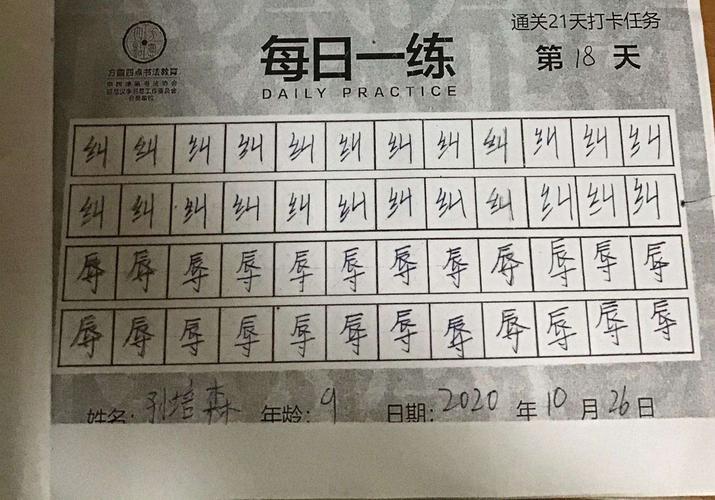 通关21天打卡任务
每日一练
第18天
DAILY PRACTICE
方圆四点书法教育
纠 纠 纠 纠 纠 纠 纠 纠 纠 纠 纠 纠
纠 纠 纠 纠 纠 纠 纠 纠 纠 纠 纠 纠
辱 辱 辱 辱 辱 辱 辱 辱 辱 辱 辱 辱
辱 辱 辱 辱 辱 辱 辱 辱 辱 辱 辱 辱
姓名: 孙培森 年龄: 9 日期: 2020 年 10 月 26 日